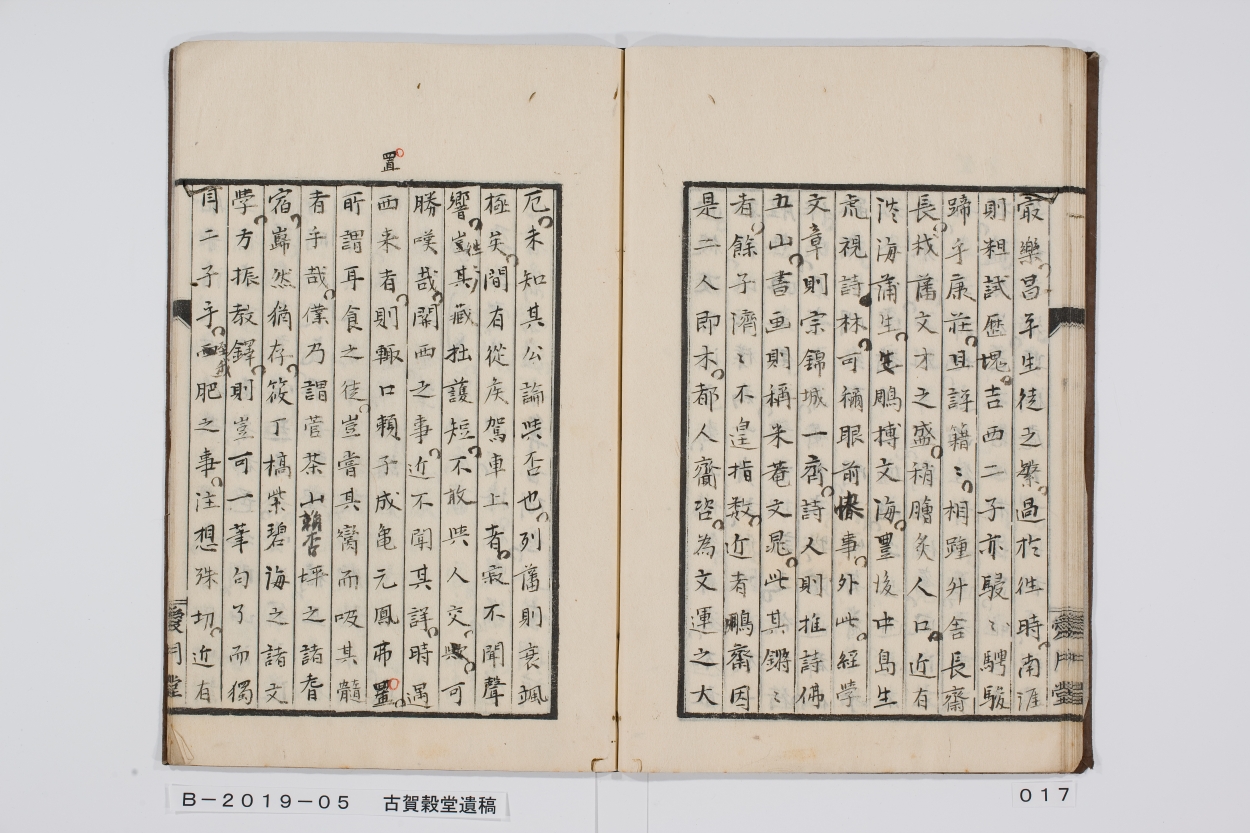 最樂昌平生徒之繁過於往時南涯
則粗試歴塊吉西二子亦駸〻騁駿
蹄乎康莊且評籍〻相踵外舎長齋
長戕藩文才之盛稍膾炙人口近有
渋海蒲生生鵰搏文海豊後中島生
虎視詩林可稱眼前事外此経学
文章則宗錦城一齊詩人則推詩佛
五山書画則稱米菴文晁此其鏘〻
者餘子濟〻不遑指数近者鵬齋因
是二人即木都人齎咨為文運之大
厄未知其公論與否也列藩則衰颯
極矣間有従侯駕車上者寂不聞聲
響豈其往〻藏拙護短不敢與人交歟可
勝嘆哉關西之事近不聞其詳時遇
西来者則輙口頼子成亀元鳳弗置
置
所謂耳食之徒豈嘗其臠而吸其髓
者乎哉僕乃謂菅茶山坪之諸耆
宿巋然猶存筱丁槁柴碧海之諸文
学方振教鐸則豈可一筆勾了而獨
肎二子乎肥之事注想殊切近有
愛月堂
B-2019-05 古賀穀堂遺稿
017